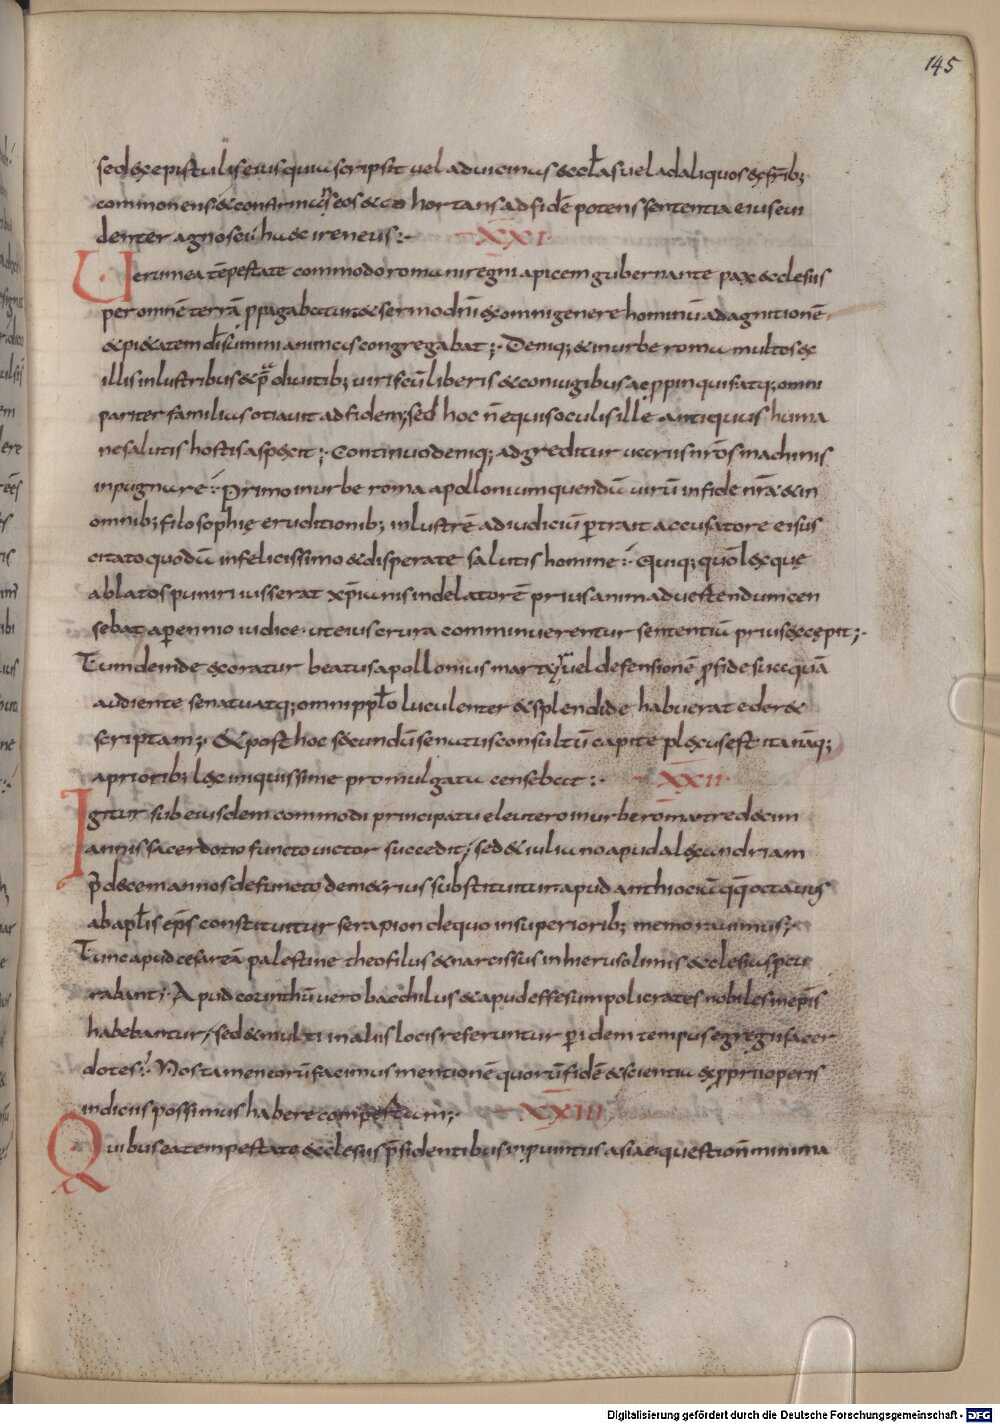 145
sed & epistulis eius quas scripsit vel ad vicinas ecclas vel ad aliquos ex frībꝫ
commonens & confirmans eos & cohortans ad fidē potens sententia eius evi
denter agnosci · haec ireneus :· XXI
Verum ea tēpestate commodo romani regni apicem gubernante pax ecclesiis
per omnē terrā ppagabatur & sermo dnī ex omni genere hominū ad agnitionē
& pietatem dī summi animas congregabat ;· Deniq; & in urbe roma multos ex
illis inlustribus & prędivitibꝫ viris cū liberis & coniugibus ac ppinquis atq; omni
pariter familia sotiavit ad fidem; sed hoc n̄ equis oculis ille antiquus huma
ne salutis hostis aspexit ;· Continuo deniq; adgreditur variis nr̄os machinis
inpugnare :· Primo in urbe roma apollonium quendū virū in fide nr̄a & in
omnibꝫ filosophię eruditionibꝫ inlustrē ad iudiciū ptrait accusatore ei sus
citato quodā infelicissimo & disperate salutis homine :· Quiq; quō lex que
ablatos puniri iusserat xp̄ianis in delatorē prius animadvertendum cen
sebat a perennio iudice · ut eius crura comminuerentur sententiā prius excępit ;·
Tum deinde exoratur beatus apollonius martyr uel defensionē p fide sua quā
audiente senatu atq; omni pplo luculenter & splendide habuerat ederet
scriptam ;· & post hoc secundū senatus consultū capite plexus est ita nāq;
a prioribꝫ lex iniquissime promulgata censebat :· XXII
Igitur sub eiusdem commodi principatu eleutero in urbe roma tredecim
annis sacerdotio functo victor succedit ; sed & iuliano apud alexandriam
p̄ decem annos defuncto demetrius substituitur apud anthiociā qq octavus
ab aplīs ep̄s constituitur serapion de quo in superioribꝫ memoravimus ;·
Tunc apud cesareā palestine theofilus & narcissus in hierusolimis ecclesias pcu
rabant ;· Apud corinthū vero bacchilus & apud effesum policrates nobiles in ep̄is
habebantur ; sed & multi in aliis locis referuntur p idem tempus egregii sacer
dotes :· Nos tamen eorū facimus mentionē quorū fidē & scientiā ex pprii operis
indiciis possimus habere compertum ;· XXIII
Quibus ea tempestate ecclesiis p̄sidentibus in partibus asiae questio n̄ minima
Digitalisierung gefördert durch die Deutsche Forschungsgemeinschaft - DFG